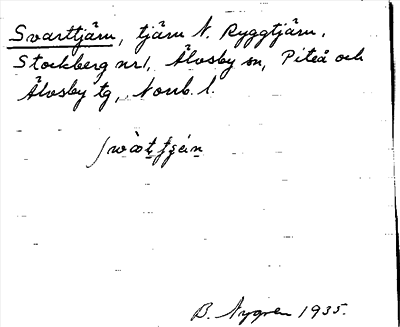 Svarttjärn, tjärn N. Ryggtjärn,
Stockberg nr 1, Älvsby sn, Piteå och
Älvsby tg, Norrb. l.
B. Nygren 1935.